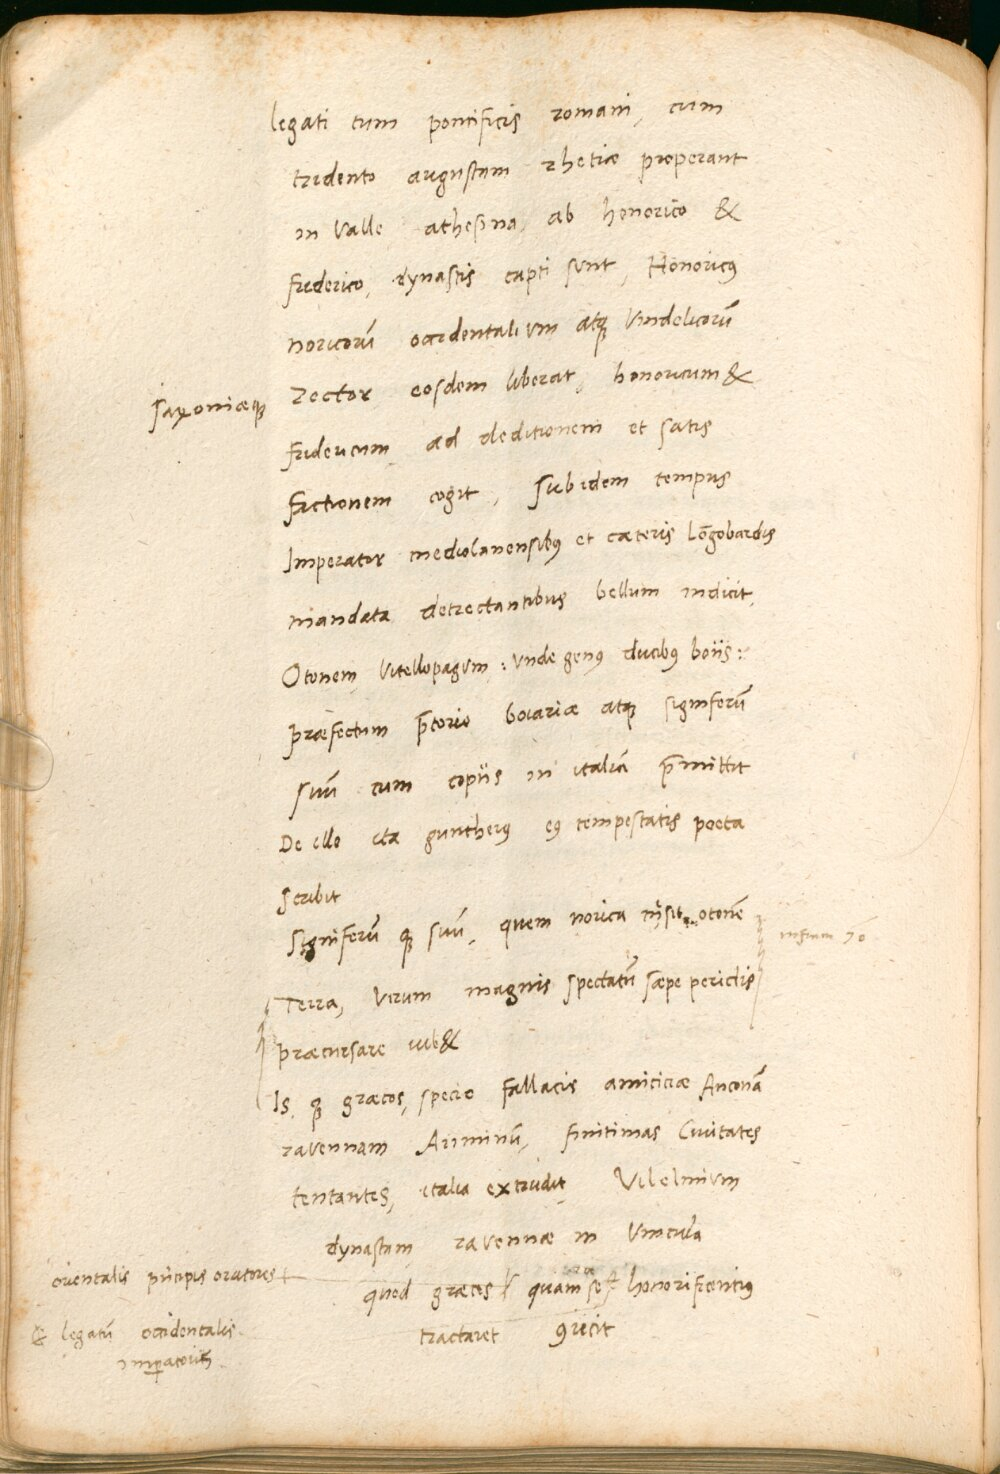 legati tum pontificis romani, cum
tridento augustam rhetiæ properant
in Valle athesina, ab honorico &
friderico, dynastis capti sunt, Honoricꝰ
noricorū occidentalium atqꝫ Vindelicorū
Saxoniæqꝫ
rector eosdem liberat, honoricum &
fridericum ad deditionem et satis
factionem cogit, Sub idem tempus
Imperator mediolanensibꝰ et cæteris Lōgobardis
mandata detrectantibus bellum indicit,
Otonem Vitellopagum : unde genꝰ ducibꝰ boiis :
præfectum p̄torio boiariæ atqꝫ signiferū
suū cum copiis in italiā p̄mittit
De illo ita guntherꝰ eꝰ tempestatis poeta
scribit
Signiferū qꝫ suū, quem norica mīsit otonē
Terra, virum magnis spectatū sæpe periclis
præcursare iub&
Is qꝫ græcos, specie fallacis amicitiæ Anconā
ravennam Ariminū, finitimas Civitates
tentantes, italia extrudit Vilelmium
dynastam ravennæ in Vincula
orientalis principis oratores
quod græcos quam se honorificentiꝰ
& legatū occidentalis
imperatoris
tractaret ꝯiecit